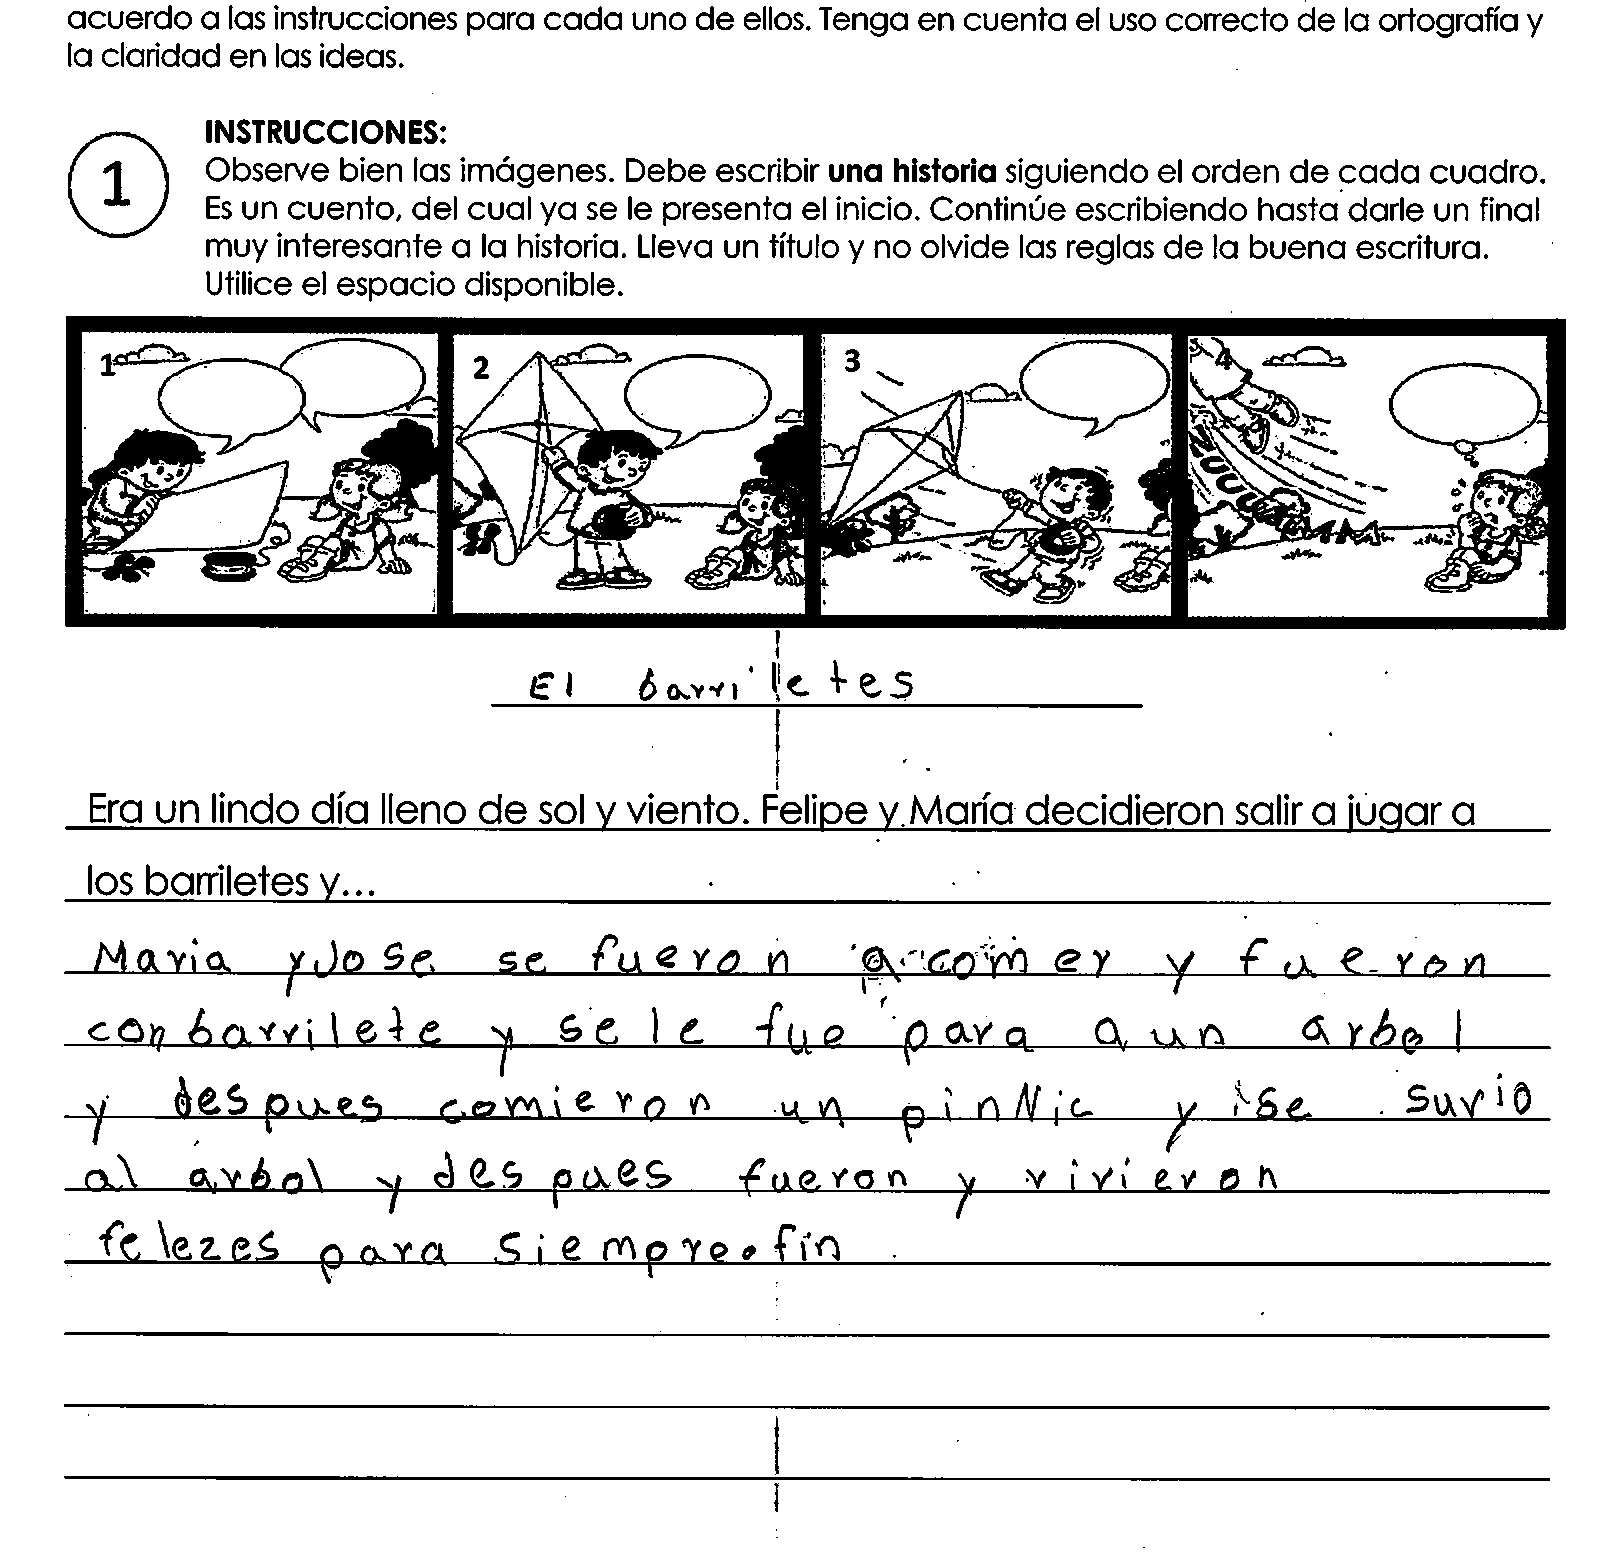 acuerdo a las instrucciones para cada uno de ellos. Tenga en cuenta el uso correcto de la ortografía y
la claridad en las ideas.
1
INSTRUCCIONES:
Observe bien las imágenes. Debe escribir una historia siguiendo el orden de cada cuadro.
Es un cuento, del cual ya se le presenta el inicio. Continúe escribiendo hasta darle un final
muy interesante a la historia. Lleva un título y no olvide las reglas de la buena escritura.
Utilice el espacio disponible.
1 2 3 4
ZUUUU
El barriletes
Era un lindo día lleno de sol y viento. Felipe y María decidieron salir a jugar a
los barriletes y...
Maria y Jose se fueron a comer y fueron
con barrilete y se le fue para a un arbol
y despues comieron un pinNic y se survio
al arbol y des pues fueron y vivieron
felezes para siempre. fin